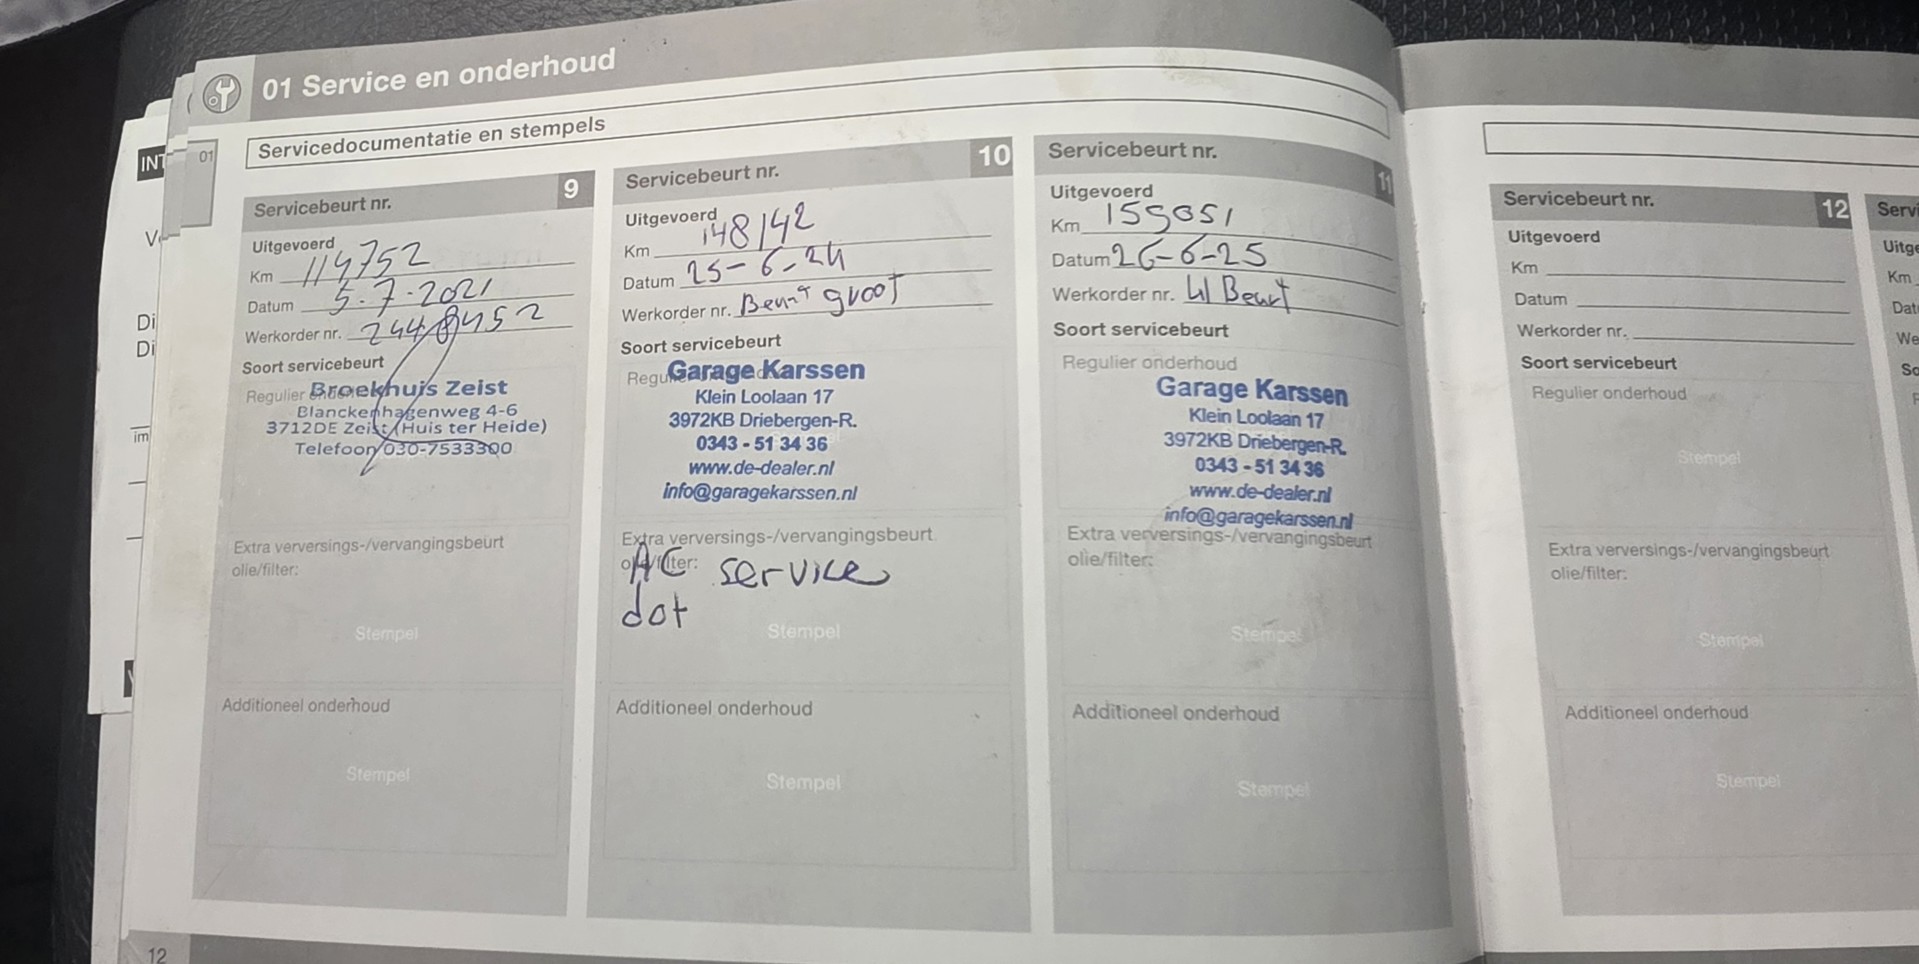 01 Service en onderhoud
01
Servicedocumentatie en stempels
Servicebeurt nr. 9
Uitgevoerd
Km 114752
Datum 5-7-2021
Werkorder nr.
Soort servicebeurt
Regulier
Broekhuis Zeist
Blanckenhagenweg 4-6
3712DE Zeist (Huis ter Heide)
Telefoon 030-7533300
Extra verversings-/vervangingsbeurt
olie/filter:
Stempel
Additioneel onderhoud
Stempel
Servicebeurt nr. 10
Uitgevoerd
Km 148142
Datum 25-6-24
Werkorder nr. Beurt groot
Soort servicebeurt
Garage Karssen
Klein Loolaan 17
3972KB Driebergen-R.
0343 - 51 34 36
www.de-dealer.nl
info@garagekarssen.nl
Extra verversings-/vervangingsbeurt
olie/filter:
AC service
dot
Stempel
Additioneel onderhoud
Stempel
Servicebeurt nr. 11
Uitgevoerd
Km 159051
Datum 26-6-25
Werkorder nr. Beurt
Soort servicebeurt
Regulier onderhoud
Garage Karssen
Klein Loolaan 17
3972KB Driebergen-R.
0343 - 51 34 36
www.de-dealer.nl
info@garagekarssen.nl
Extra verversings-/vervangingsbeurt
olie/filter:
Stempel
Additioneel onderhoud
Stempel
12
Servicebeurt nr. 12
Uitgevoerd
Km
Datum
Werkorder nr.
Soort servicebeurt
Regulier onderhoud
Stempel
Extra verversings-/vervangingsbeurt
olie/filter:
Stempel
Additioneel onderhoud
Stempel
Km